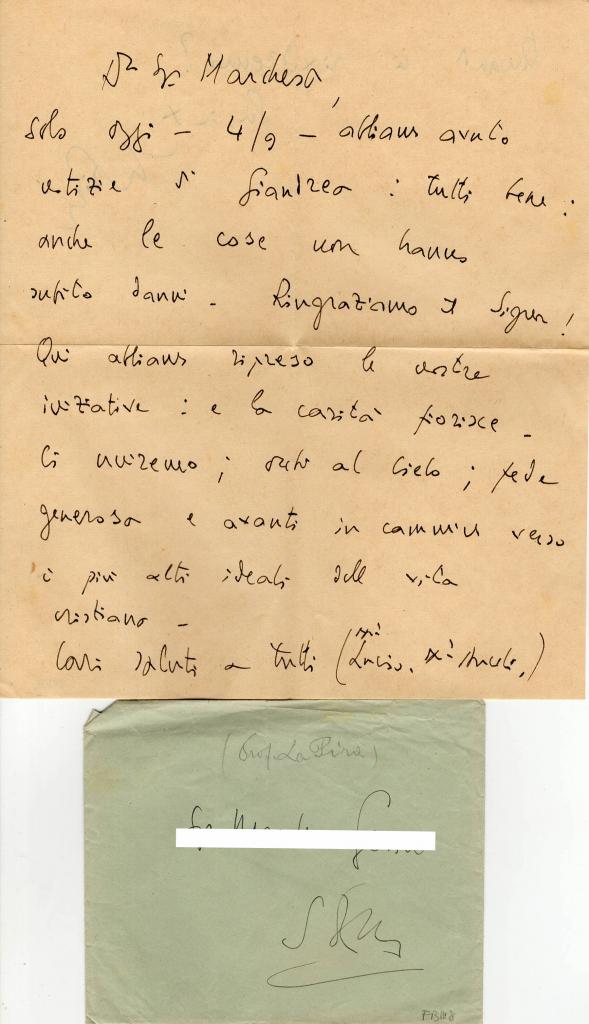 Sig. Marchesa,
solo oggi – 4/9 – abbiamo avuto
notizie di Giandrea : tutti bene :
anche le cose non hanno
subito danni – Ringraziamo il Signore!
Qui abbiamo ripreso le nostre
iniziative : e la carità fiorisce –
Ci uniremo ; al Cielo ; fede
generosa e avanti in cammino verso
i più alti ideali della vita
cristiana –
Cari saluti a tutti (
(Prof. La Pira)